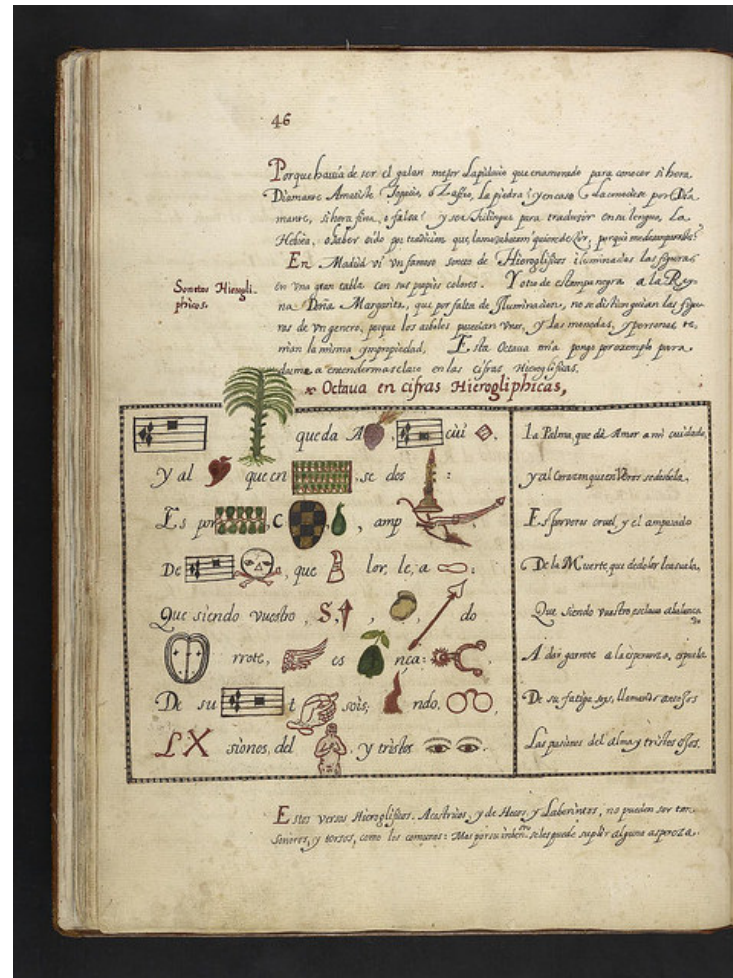 46
Porque havia de ser el galan mejor Lapidario que enamorado para conocer si hera
Diamante Amatiste Topacio, o Zafiro, la piedra? y en caso la conociese por Dia
mante, si hera fina, o falsa? y ser Trilingue para traducir en su lengua, La
Hebrea, o haber oido por tradicion que
En Madrid vi vn famoso soneto de Hieroglificos iluminadas las figuras
en vna gran tabla con sus propios colores. Y otro de estampa negra a la Rey-
na Doña Margarita, que por falta de Iluminacion, no se distinguian las figu-
ras de vn genero, porque los arboles parecian vnos, y las monedas, y personas te-
nian la misma ympropiedad, Esta Octava mia pongo por exemplo para
darme a entender mas claro en las cifras Hieroglificas.
Sonetos Hierogli-
phicos.
Octava en cifras Hierogliphicas,
queda A cui
Y al que en se dos :
Es por c , amp
De a, que lor, le, a :
Que siendo vuestro, S, , do
rrote, es nça:
De su t sois; ndo.
LX siones, del y tristes
La Palma, que dá Amor a mi cuidado,
y al Corazon quien Veros se desbela,
Es porveros cruel, y el amparado
De la Muerte, que de dolor le asuela,
Que siendo vuestro esclavo abalança
do
A dar garrote a la esperanza, espuela
De su fatiga soys, llamando antojos
Las pasiones del alma y tristes ojos.
Estos versos Hieroglificos. Acrosticos, y de Hecos, y Laberintos, no pueden ser tan
sonoros, y tersos, como los comunes: Mas por su se les puede suplir alguna aspereza.